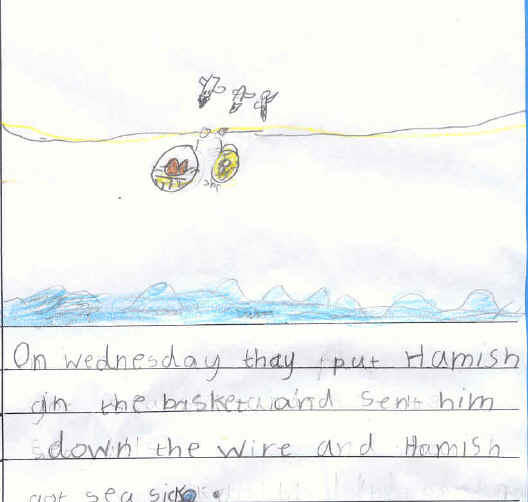 On wednesday thay put Hamish
in the basket and sent him
down the wire and Hamish
got sea sick.